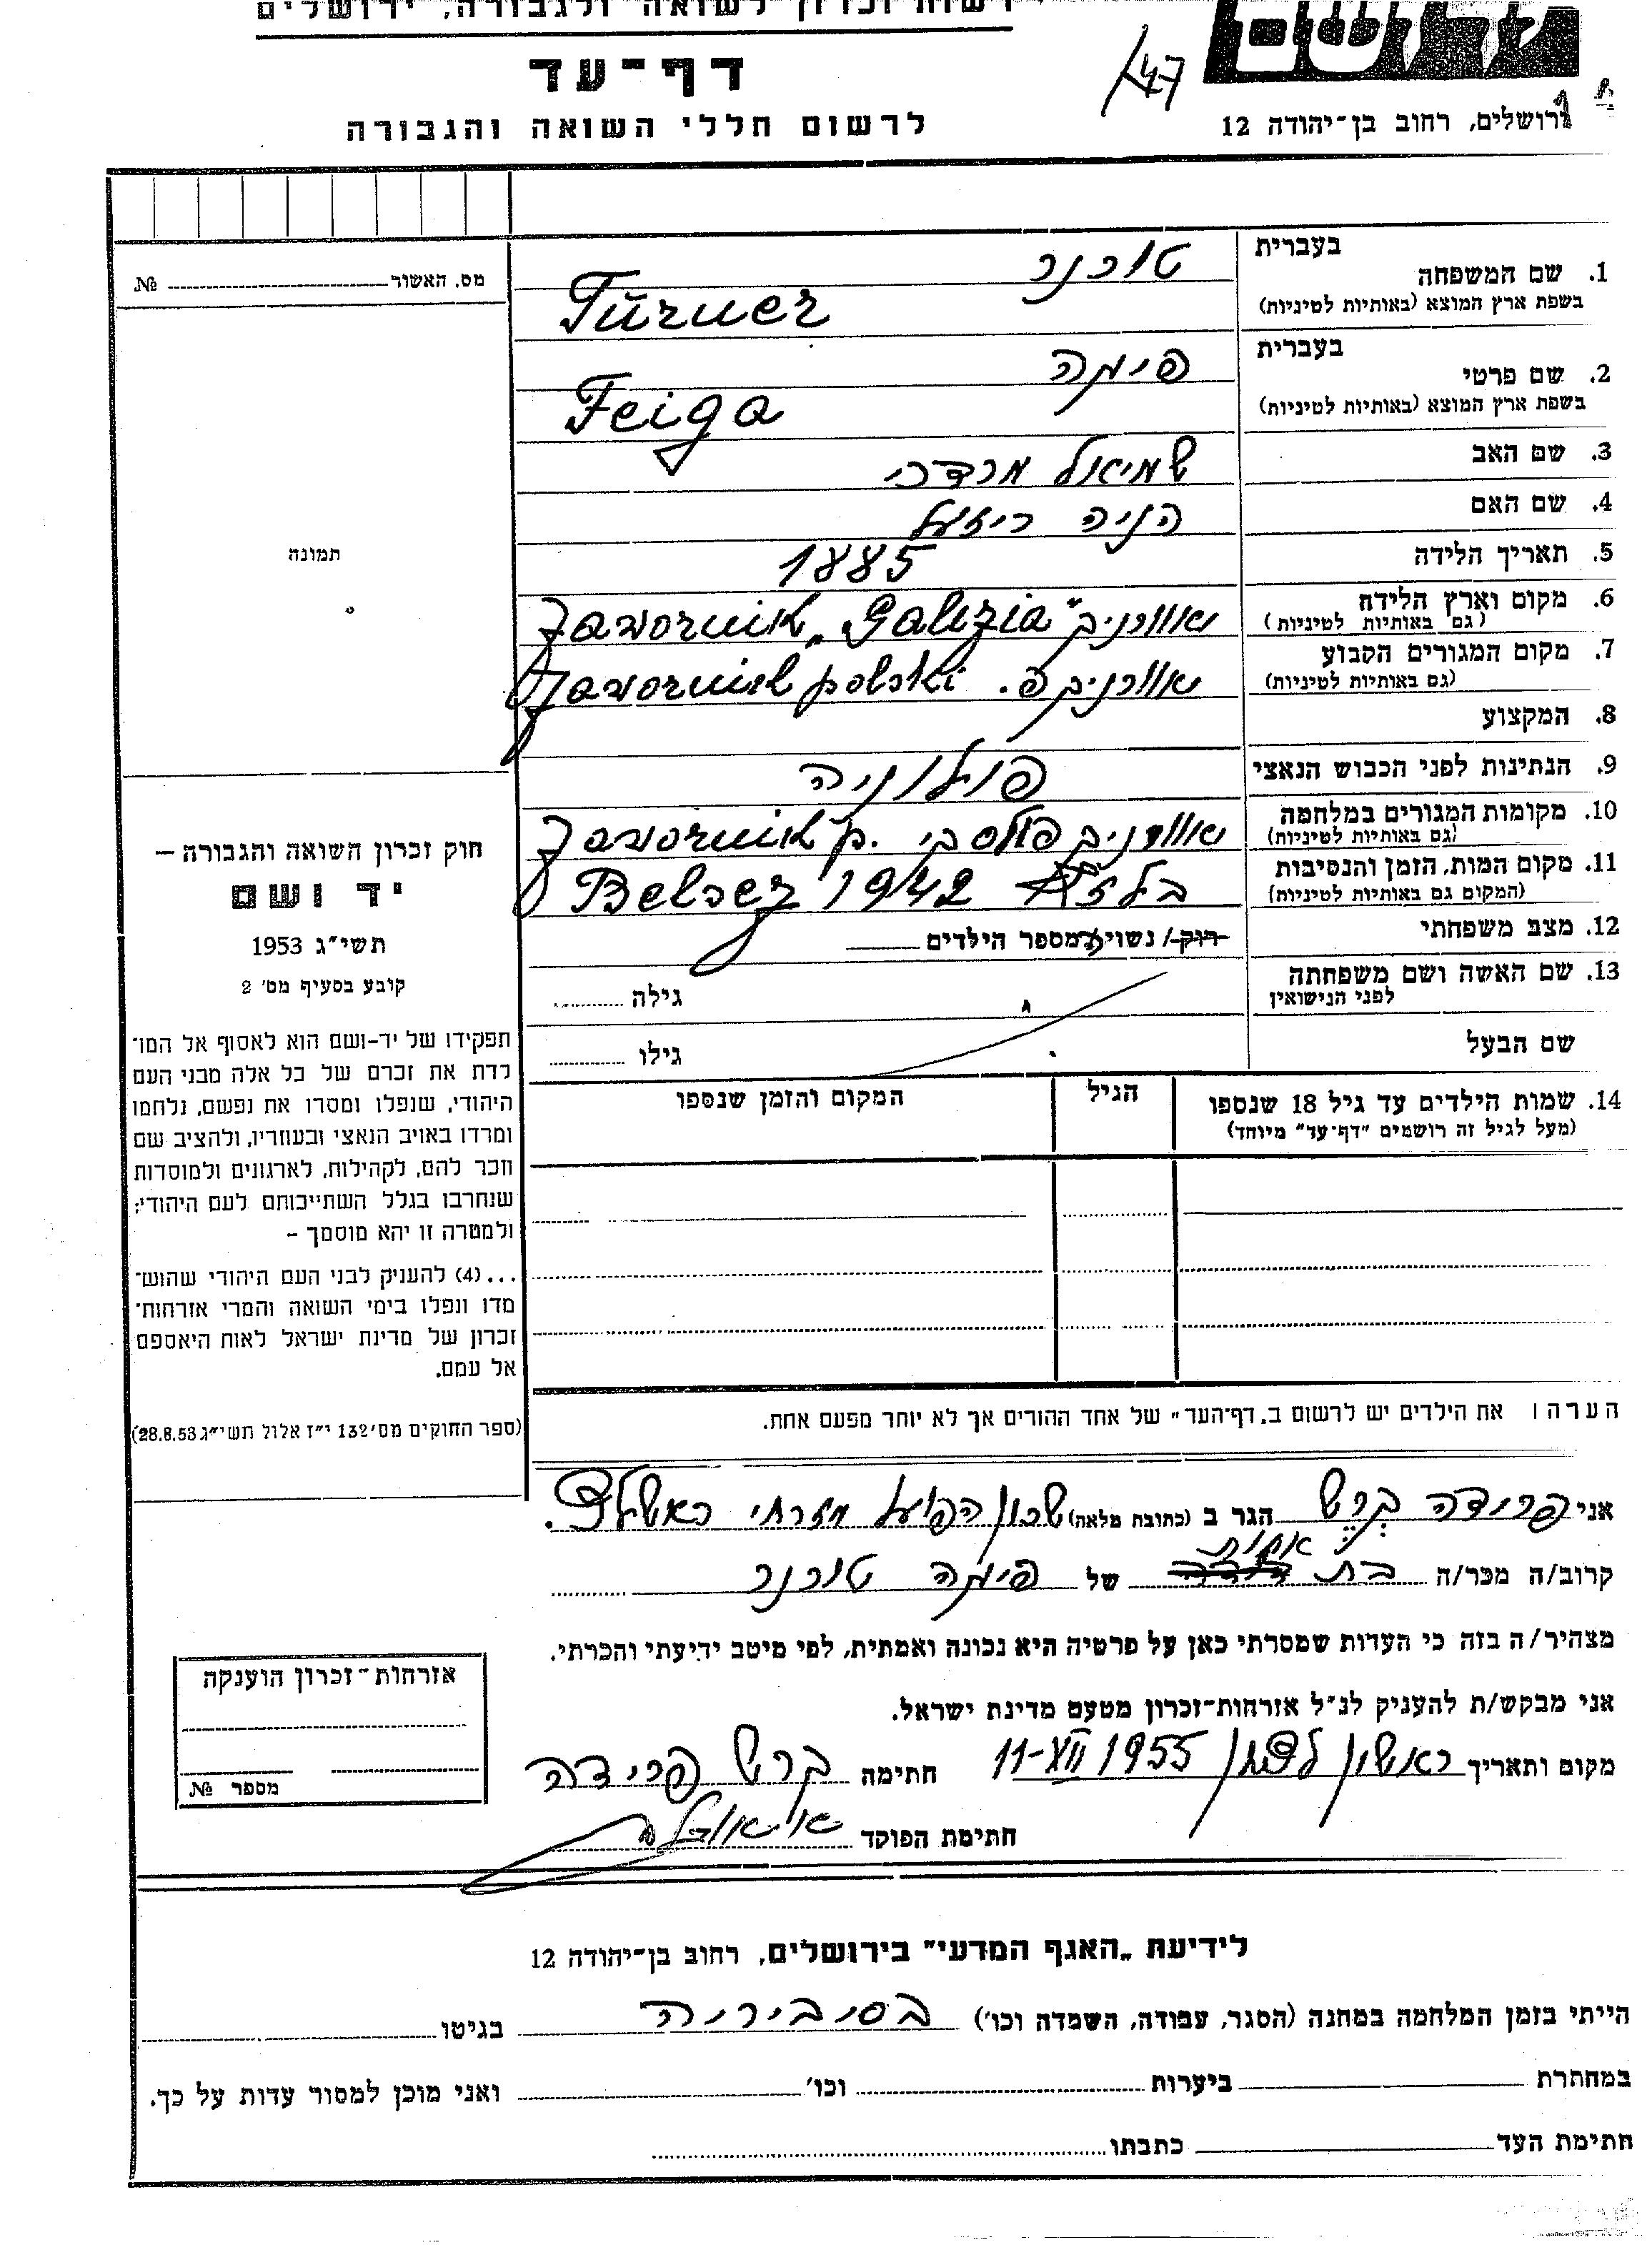 רשות זכרון לשואה ולגבורה, ירושלים
דף-עד
לרשום חללי השואה והגבורה
ירושלים, רחוב בן-יהודה 12
מס. האשור № 
תמונה
1. שם המשפחה בעברית טורנר
בשפת ארץ המוצא (באותיות לטיניות) Türner
2. שם פרטי בעברית פיגה
בשפת ארץ המוצא (באותיות לטיניות) Feiga
3. שם האב שמיאל מרדכי
4. שם האם הניה רייזעל
5. תאריך הלידה 1885
6. מקום וארץ הלידה (גם באותיות לטיניות) Javornik „Galizia"
7. מקום המגורים הקבוע (גם באותיות לטיניות) Javornik polski
8. המקצוע
9. הנתינות לפני הכבוש הנאצי פולוניה
10. מקומות המגורים במלחמה (גם באותיות לטיניות) Javornik p.
11. מקום המות, הזמן והנסיבות (המקום גם באותיות לטיניות) Belzez 1942
12. מצב משפחתי רוק / נשוי / מספר הילדים
13. שם האשה ושם משפחתה לפני הנישואין גילה
שם הבעל גילו
14. שמות הילדים עד גיל 18 שנספו הגיל המקום והזמן שנספו
(מעל לגיל זה רושמים "דף-עד" מיוחד)
חוק זכרון השואה והגבורה –
יד ושם
תשי"ג 1953
קובע בסעיף מס' 2
תפקידו של יד-ושם הוא לאסוף אל המו־
לדת את זכרם של כל אלה מבני העם
היהודי, שנפלו ומסרו את נפשם, נלחמו
ומרדו באויב הנאצי ובעוזריו, ולהציב שם
וזכר להם, לקהילות, לארגונים ולמוסדות
שנחרבו בגלל השתייכותם לעם היהודי;
ולמטרה זו יהא מוסמך –
...(4) להעניק לבני העם היהודי שהוש־
מדו ונפלו בימי השואה והמרי אזרחות־
זכרון של מדינת ישראל לאות היאספם
אל עמם.
(ספר החוקים מס' 132 י"ז אלול תשי"ג 28.8.53)
הערה: את הילדים יש לרשום ב„דף-העד" של אחד ההורים אך לא יותר מפעם אחת.
אני פרידה קרש הגר ב (כתובת מלאה) שכון הפועל מזרחי ראשל"צ.
קרוב/ה מכר/ה בת אחות של פיגה טורנר
מצהיר/ה בזה כי העדות שמסרתי כאן על פרטיה היא נכונה ואמתית, לפי מיטב ידיעתי והכרתי.
אני מבקש/ת להעניק לנ"ל אזרחות-זכרון מטעם מדינת ישראל.
מקום ותאריך ראשון לציון 11-XII 1955 חתימה קרש פרידה
חתימת הפוקד
אזרחות-זכרון הוענקה
מספר №
לידיעת „האגף המדעי" בירושלים, רחוב בן-יהודה 12
הייתי בזמן המלחמה במחנה (הסגר, עבודה, השמדה וכו') בסיביריה בגיטו
במחתרת ביערות וכו' ואני מוכן למסור עדות על כך.
חתימת העד כתבתו